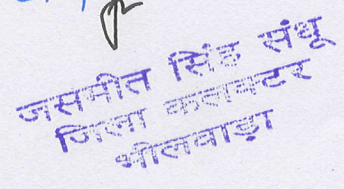 जसमीत सिंह संधू
जिला कलक्टर
भीलवाड़ा